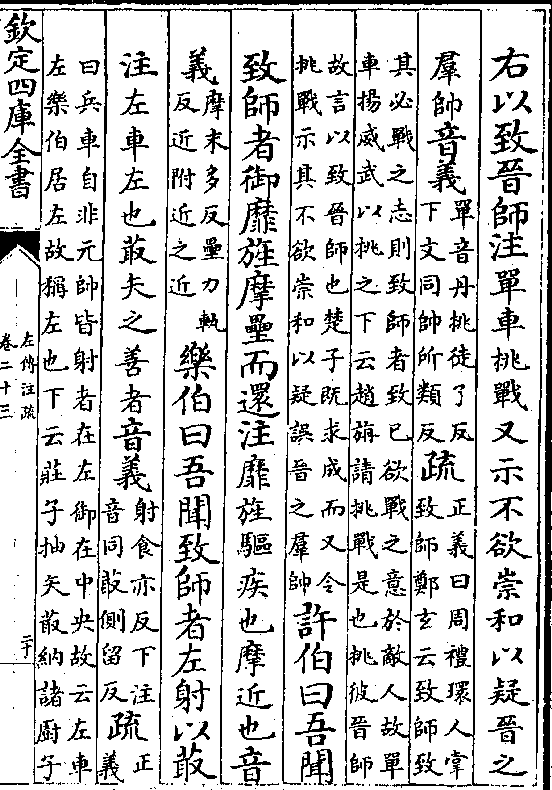 右以致晉師注單車挑戰又示不欲崇和以疑晉之
羣帥音義單音丹挑徒了反下文同帥所類反疏正義曰周禮環人掌致師鄭玄云致師致
其必戰之志則致師者致已欲戰之意於敵人故單車揚威武以挑之下云趙旃請挑戰是也挑彼晉師
故言以致晉師也楚子既求成而又令挑戰示其不欲崇和以疑誤晉之羣帥許伯曰吾聞
致師者御靡旌摩壘而還注靡旌驅疾也摩近也音
義摩末多反壘力軌反近附近之近樂伯曰吾聞致師者左射以菆
注左車左也菆矢之善者音義射食亦反下注音同菆側留反疏正義
曰兵車自非元帥皆射者在左御在中央故云左車左樂伯居左故稱左也下云莊子抽矢菆納諸厨子
欽定四庫全書
左傳注疏
卷二十三
二十